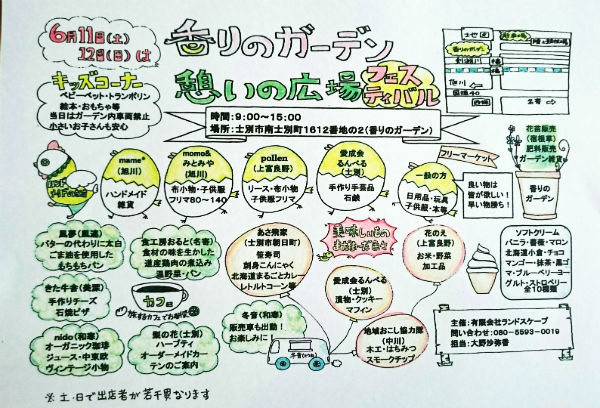 6月11日(土)
12日(日)は
香りのガーデン
憩いの広場
フェスティバル
時間:9:00～15:00
場所:士別市南士別町1612番地の2(香りのガーデン)
キッズコーナー
ベビーベット・トランポリン
絵本・おもちゃ等
当日はガーデン内車両禁止
小さいお子さんも安心
香りのガーデン
旭川
国道40
名寄
ハンドメイドのお店
mame*
(旭川)
ハンドメイド
雑貨
momo&
みとみや
(旭川)
布小物・子供服
フリマ80～140
pollen
(上富良野)
リース・布小物
子供服フリマ
愛成会
るんべる
(士別)
手作り手芸品
石鹸
一般の方
日用品・玩具
子供服・本等
フリーマーケット
良い物は
皆が欲しい!
早い物勝ち!
花苗販売
(宿根草)
肥料販売
ガーデン雑貨
香りの
ガーデン
風夢(風連)
バターの代わりに太白
ごま油を使用した
もちもちパン
食工房おると(名寄)
食材の味を生かした
道産鶏肉の煮込み
温野菜・パン
きた牛舎(美深)
手作りチーズ
石焼ピザ
カフェ
旅するカフェでお茶を
nido(和寒)
オーガニック珈琲
ジュース・中東欧
ヴィンテージ小物
梨の花(士別)
ハーブティ
オーダーメイドカー
テンのご案内
あさ飛家
(士別市朝日町)
笹寿司
刺身こんにゃく
北海道まるごとカレー
レトルトコーン等
美味しいもの
冬青(和寒)
販売車も出動!
お楽しみに
愛成会るんべる
(士別)
漬物・クッキー
マフィン
花のえ
(上富良野)
お米・野菜
加工品
地域おこし協力隊
(中川)
木工・はちみつ
スモークチップ
ソフトクリーム
バニラ・薔薇・マロン
北海道小倉・チョコ
マンゴー・抹茶・黒ゴ
マ・ブルーベリーヨー
グルト・ストロベリー
全10種類
主催:有限会社ランドスケープ
問い合わせ:080-5593-0019
担当:大野沙弥香
※土・日で出店者が若干異なります